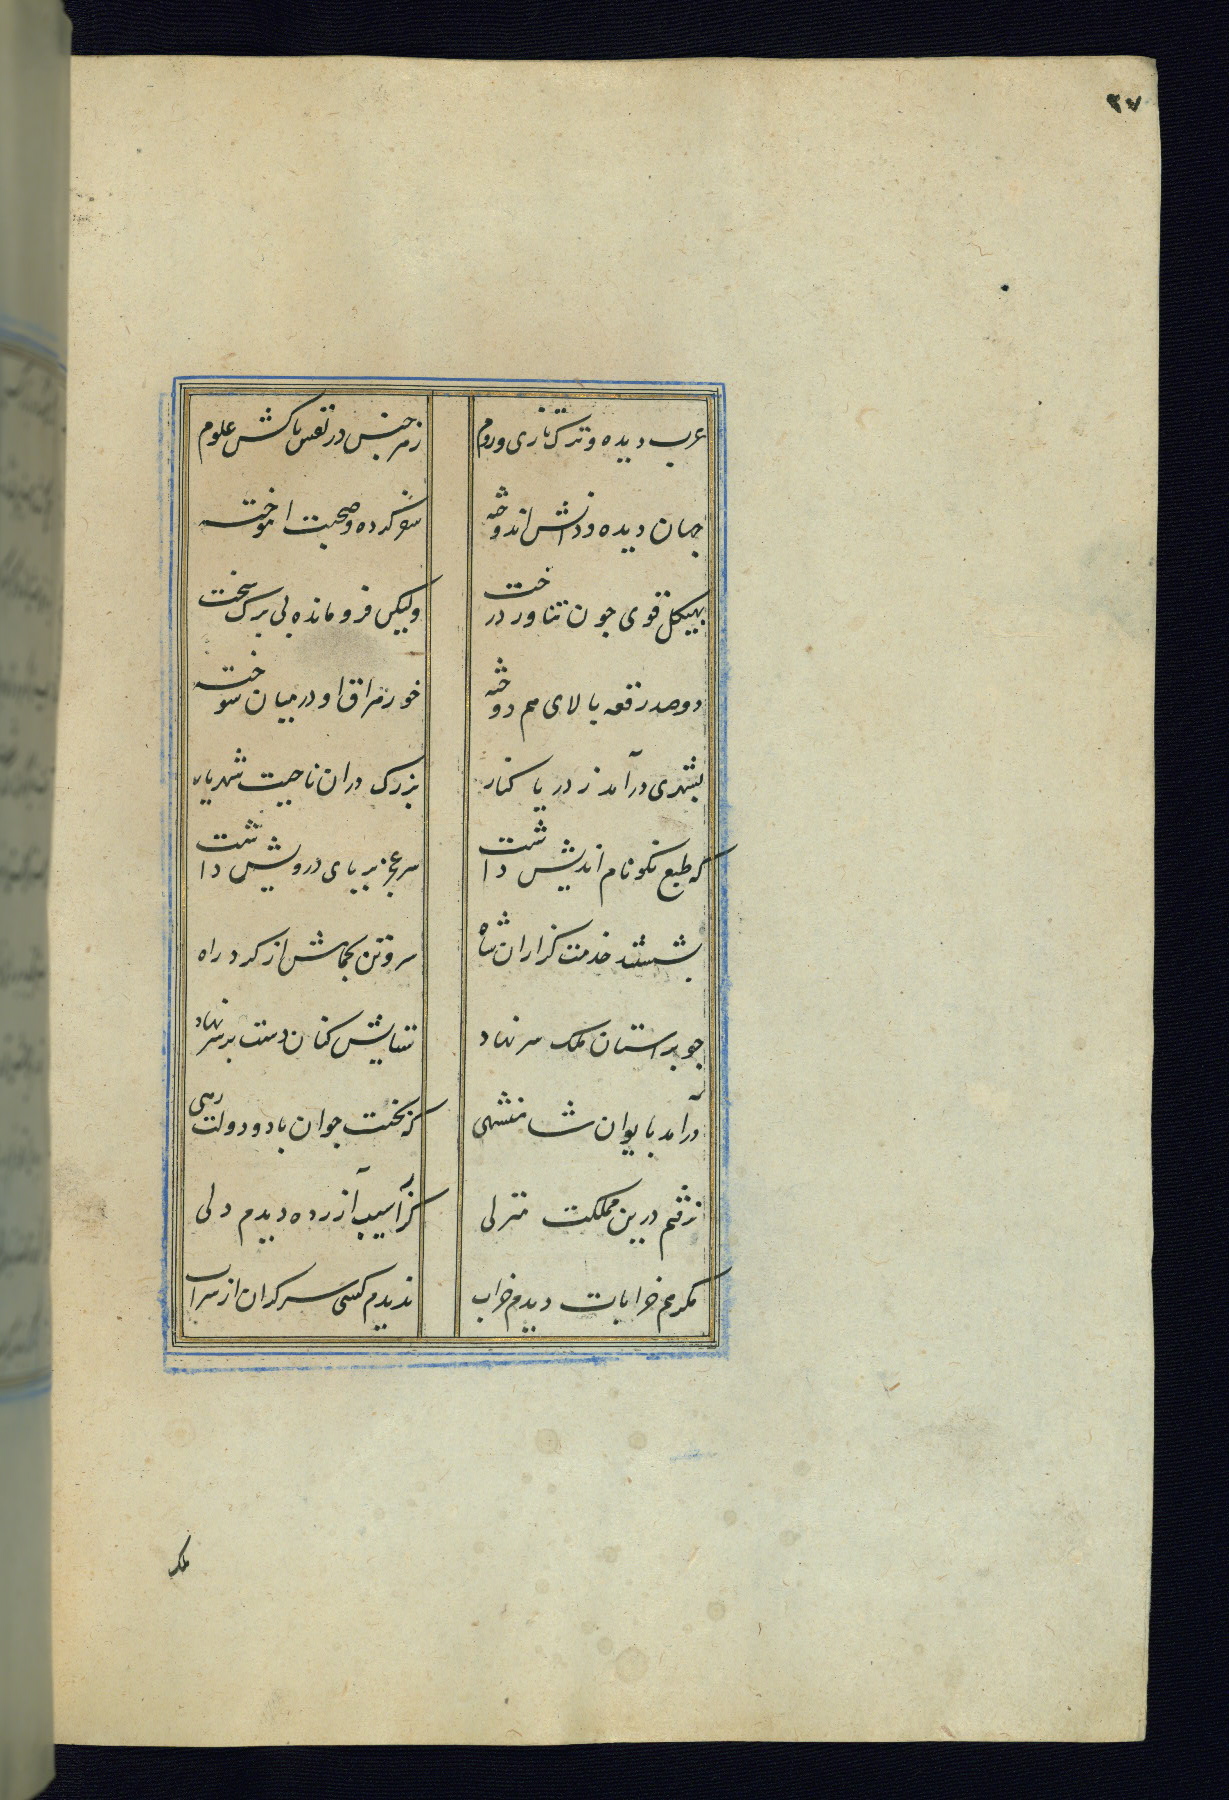 ٣٧
عرب دیده و ترک و تازی و روم	ز هر جنس در نفس پاکش علوم
جهان دیده و دانش اندوخته	سفر کرده و صحبت آموخته
بهیکل قوی جون تناور درخت	ولیکن فرومانده بی برک سخت
دوصد رقعه بالای هم دوخته	خود میان سوخته
بشهری درآمد ز دریا کنار	بزرک دران ناحیت شهریار
که طبع نکونام اندیش داشت	سر عجز بر پای درویش داشت
بشستند خدمت کزاران شاه	سر و تن بحمامش از کرد راه
جو بر استان ملک سر نهاد	ستایش کنان دست بر سر نهاد
درآمد بایوان شاهنشهی	که بختت جوان باد و دولت رهی
نرفتم درین مملکت منزلی	کز آسیب آزرده دیدم دلی
ندیدم کسی سرکران از سراب
مکر هم خرابات دیدم خراب
ملک